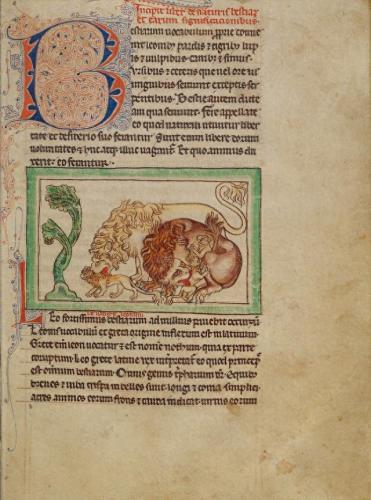 Incipit liber de naturis bestiarum
et earum significationibus
Bestiarum vocabulum proprie conve
nit leonibus pardis et tigribus lupis
et vulpibus canibus et simiis
Ursibus et ceteris que vel ore vel
unguibus seviunt exceptis ser
pentibus Bestie autem dicte
a vi qua seviunt Fere appellate
eo quod naturali utuntur liber
tate et desiderio suo ferantur Sunt enim libere eorum
voluntates et huc atque illuc vagantur Et quo animus du
xerit eo feruntur
Leo fortissimus bestiarum ad nullius pavebit occursum
Leonis vocabulum ex greca origine inflexum est in latinum
Grece enim leon vocatur et est nomen nothum quia ex parte
corruptum Leo grece latine rex interpretatur eo quod princeps
est omnium bestiarum
breves et iuba crispa longi et coma simplici
acres animos eorum frons et cauda indicat virtus eorum